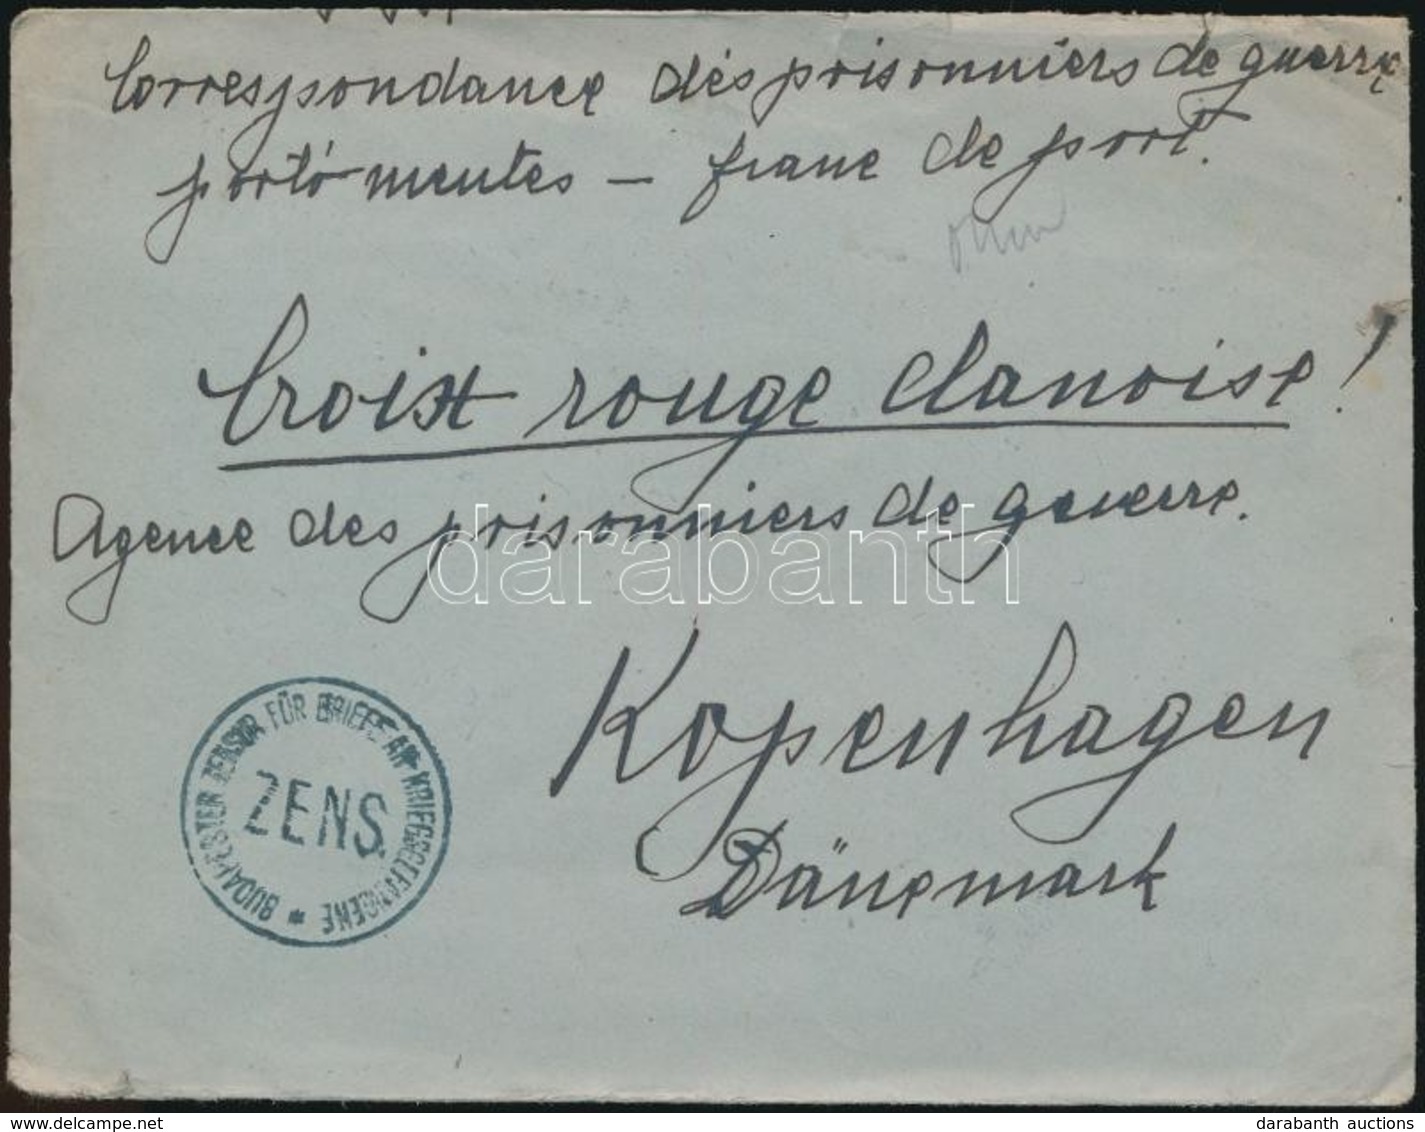 Correspondance dés prisonniers de guerre
portó mentes — franc de port.
Croix rouge danoise!
Agence des prisonniers de guerre.
darabanth
Kopenhagen
Dänemark
BUDAPESTER ZENSUR FÜR BRIEFE AN KRIEGSGEFANGENE *
ZENS.
delcampe.net
darabanth auctions